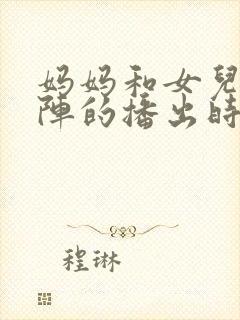 妈妈和女兒
陣的播出時
程琳